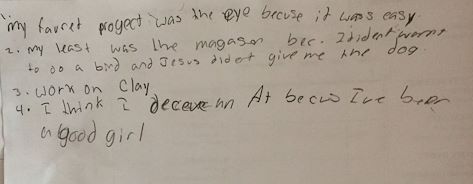 1. my favret progect was the eye becuse it was easy.
2. my least was the magasen bec. I dident wornt
to do a bird and Jesus didet give me the dog.
3. work on clay
4. I think I deceve an At becus Ive been
a good girl